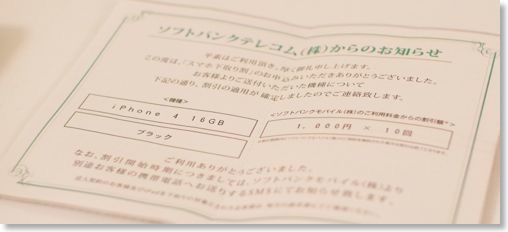 ソフトバンクテレコム(株)からのお知らせ
平素はご利用頂き、厚く御礼申し上げます。
この度は、「スマホ下取り割」のお申込みいただきありがとうございました。
お客様よりご送付いただいた機種について
下記の通り、割引の適用が確定しましたのでご連絡致します。
<機種>
iPhone 4 16GB
ブラック
<ソフトバンクモバイル(株)のご利用料金からの割引額*>
1,000円 × 10回
ご利用ありがとうございました。
なお、割引開始時期につきましては、ソフトバンクモバイル(株)より
別途お客様の携帯電話へお送りするSMSにてお知らせ致します。